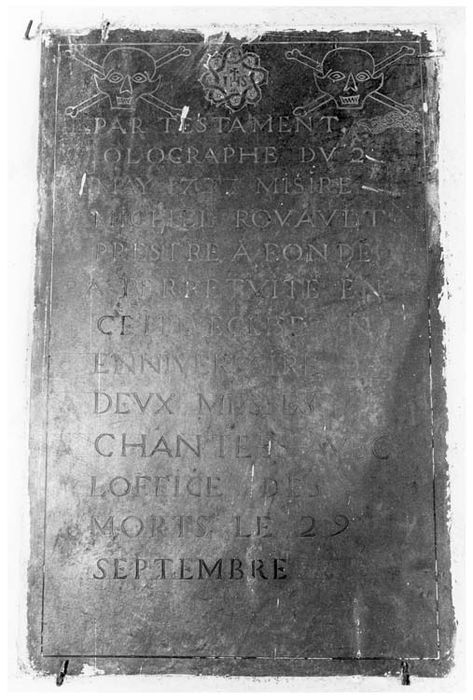 IHS
PAR TESTAMENT
HOLOGRAPHE DV 2
MAY 1737 MISIRE
MICHEL ROVAVLT
PRESTRE A FONDÉ
A PERPETVITE EN
CETTE
ENNIVERSAIRE
DEVX MESSES
CHANTEES AVEC
LOFFICE DES
MORTS LE 29
SEPTEMBRE